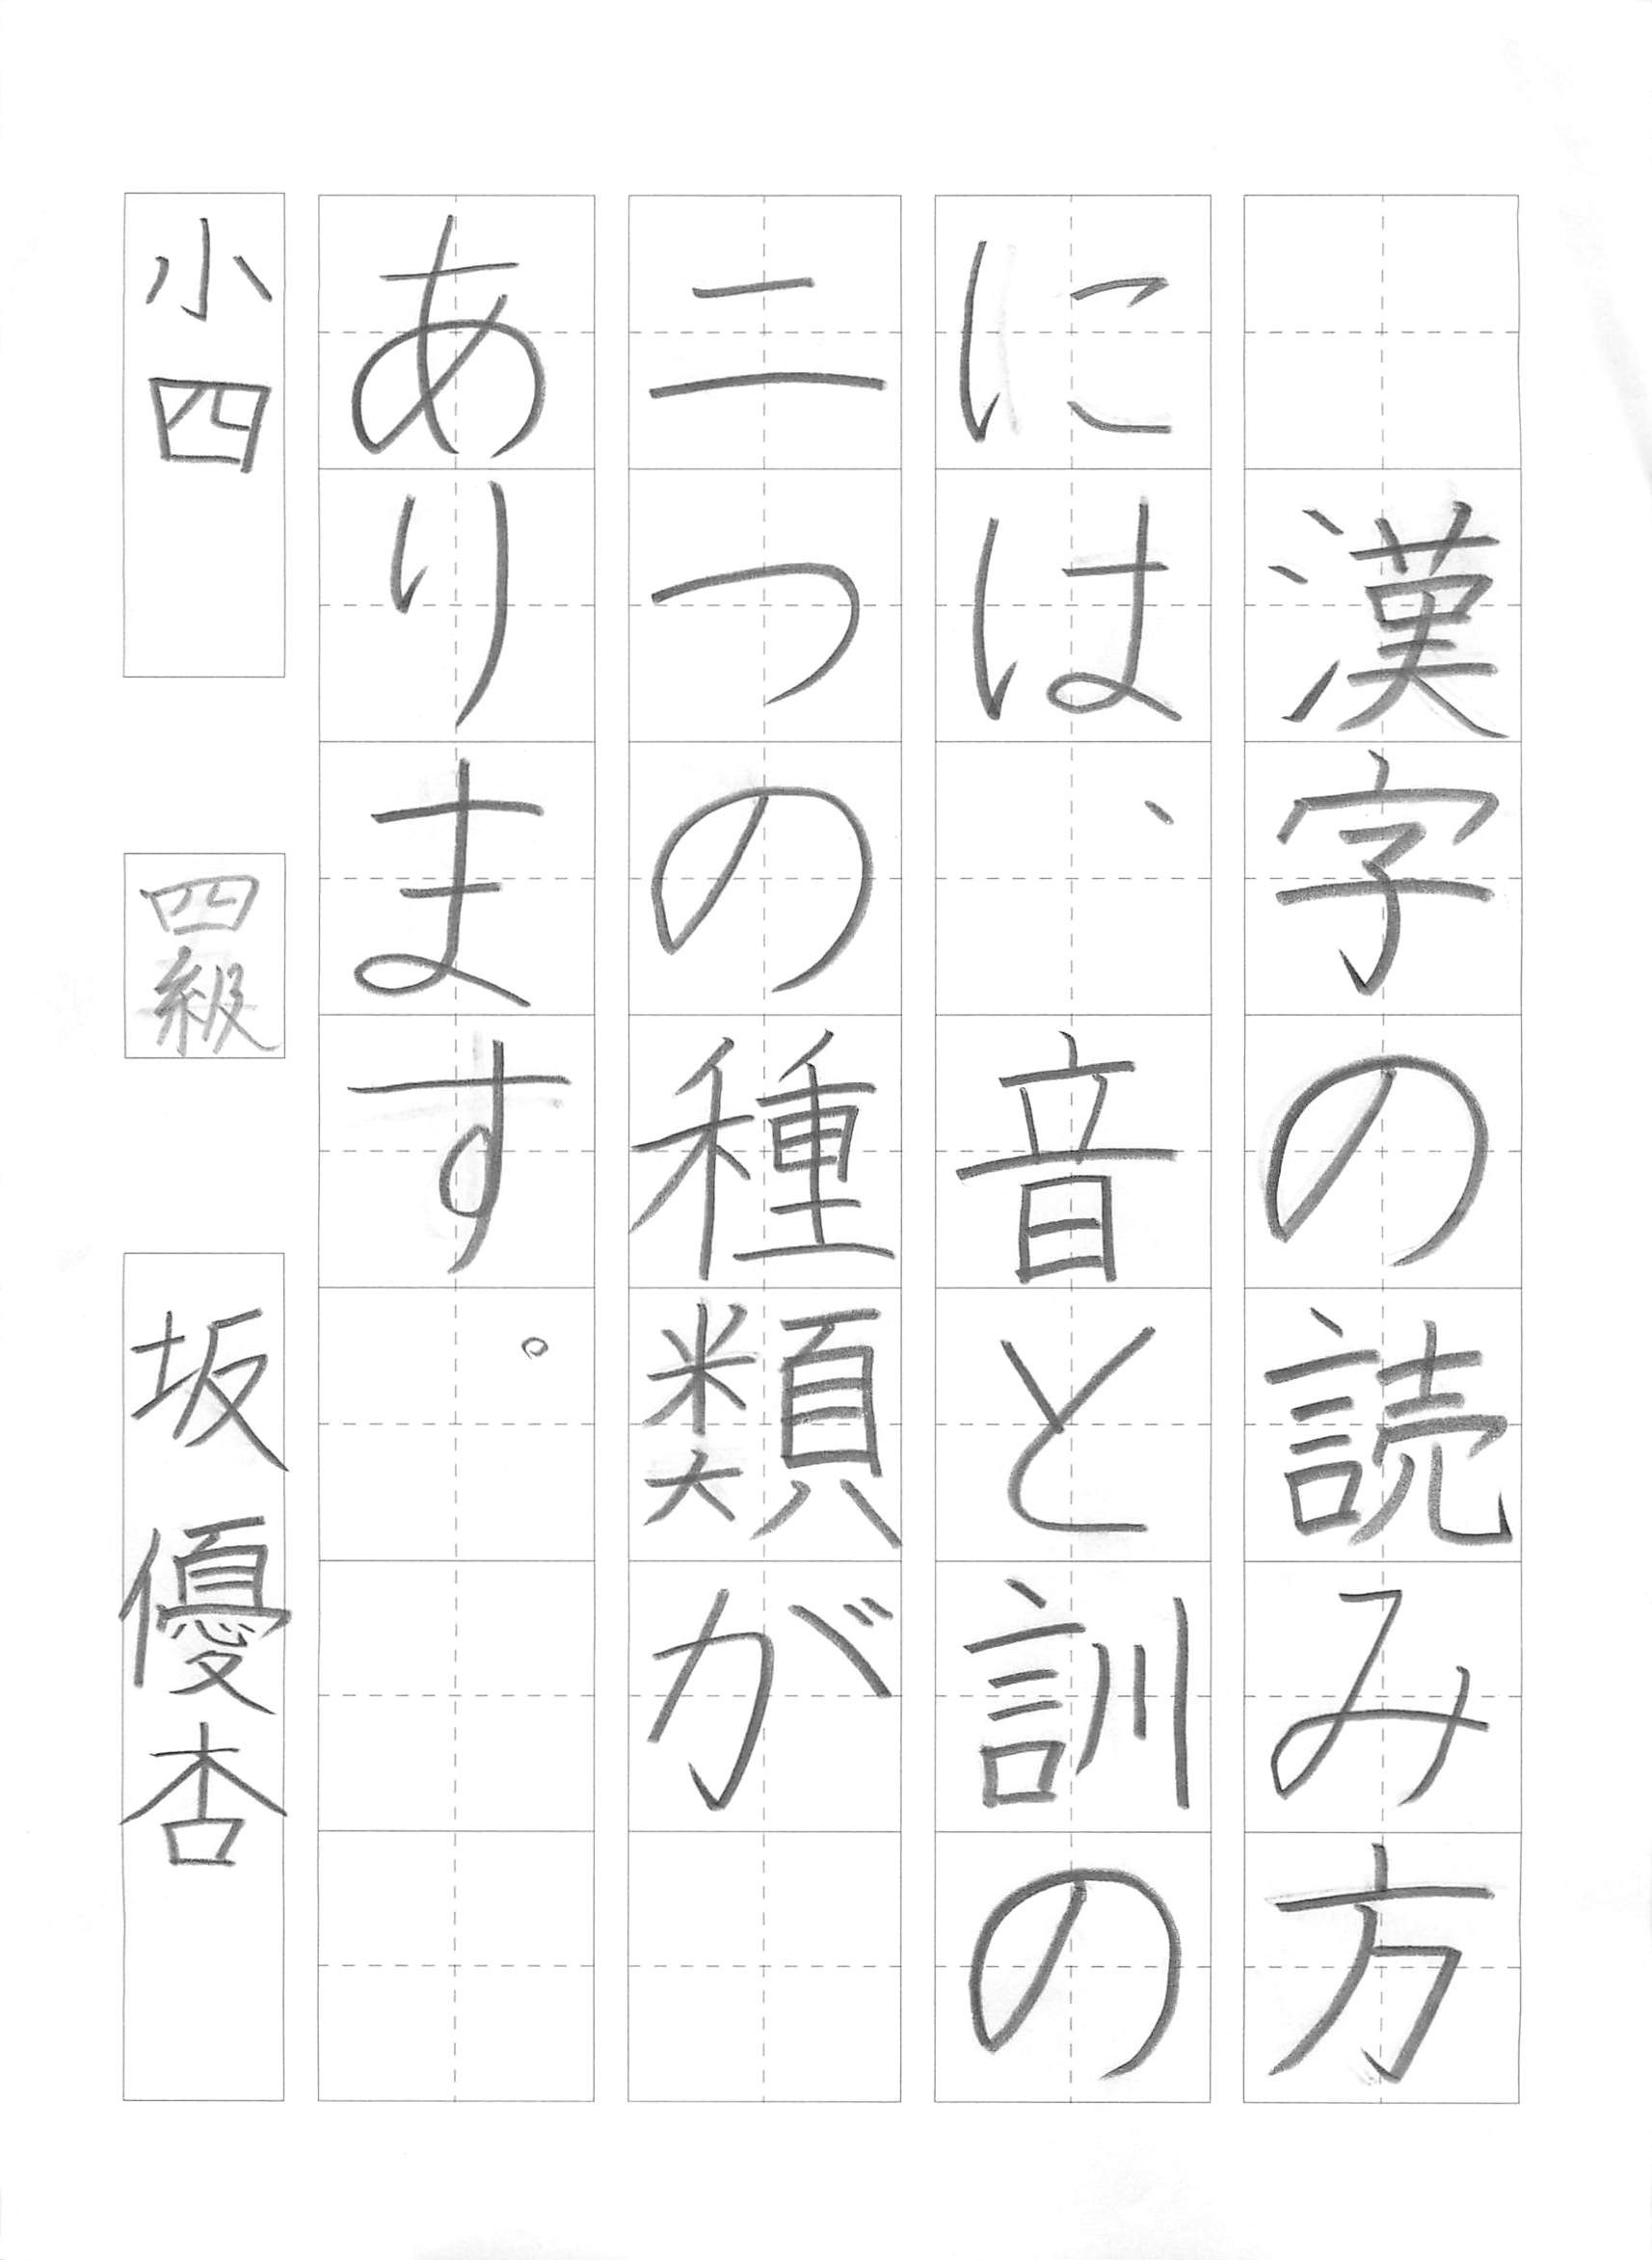 漢字の読み方
には、音と訓の
二つの種類が
あります。
小四　四級　坂優杏